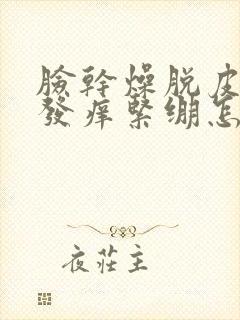 臉幹燥脱皮
發癢緊繃怎
夜莊主